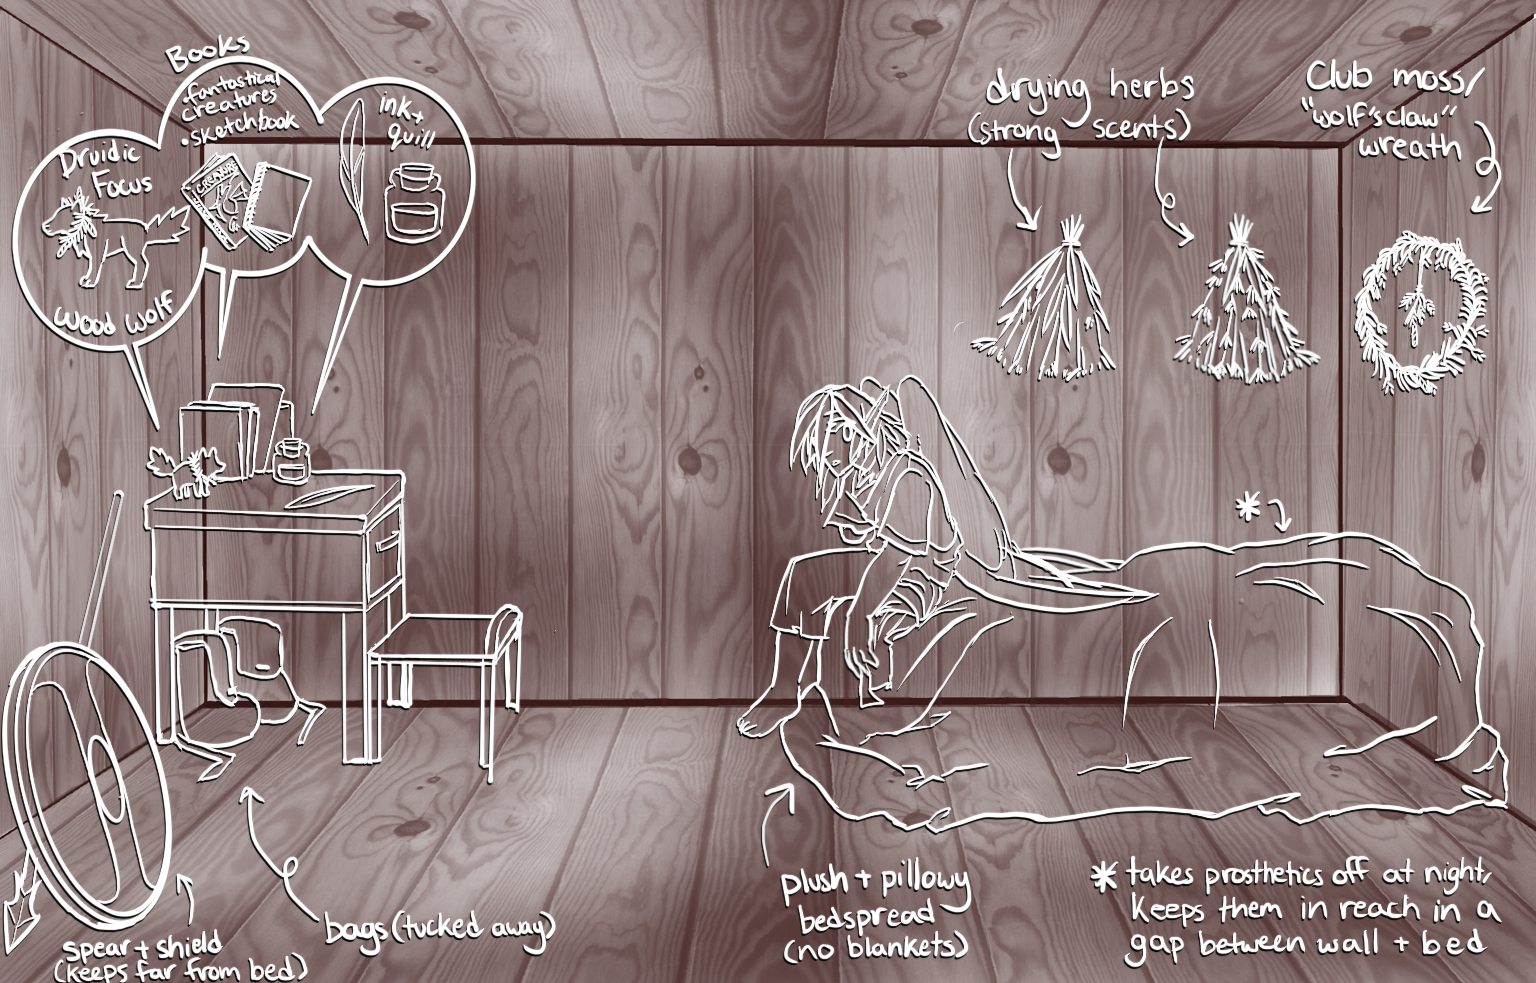 Books
•fantastical
creatures
•sketchbook
ink+
quill
Druidic
Focus
CREATURE
wood wolf
drying herbs
(strong scents)
Club moss/
"wolf's claw"
wreath
*
spear + shield
(keeps far from bed)
bags (tucked away)
plush + pillowy
bedspread
(no blankets)
* takes prosthetics off at night,
keeps them in reach in a
gap between wall + bed